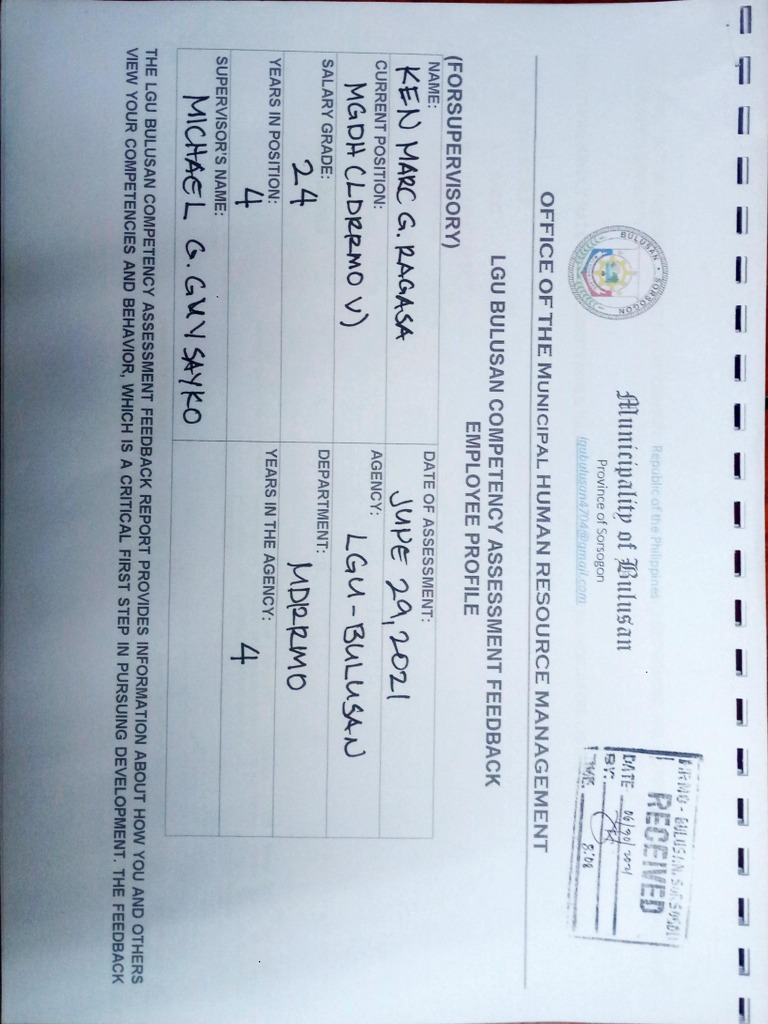 BULUSAN • SORSOGON
Republic of the Philippines
Municipality of Bulusan
Province of Sorsogon
lgubulusan4704@gmail.com
HRMO - BULUSAN, SORSOGON
RECEIVED
DATE 06/30/2021
BY:
TIME: 8:08
OFFICE OF THE MUNICIPAL HUMAN RESOURCE MANAGEMENT
LGU BULUSAN COMPETENCY ASSESSMENT FEEDBACK
EMPLOYEE PROFILE
(FORSUPERVISORY)
NAME:
KEN MARC G. RAGASA
DATE OF ASSESSMENT:
JUNE 29, 2021
CURRENT POSITION:
MGDH CLDRRMO V)
AGENCY:
LGU - BULUSAN
SALARY GRADE:
24
DEPARTMENT:
MDRRMO
YEARS IN POSITION:
4
YEARS IN THE AGENCY:
4
SUPERVISOR'S NAME:
MICHAEL G. GUYSAYKO
THE LGU BULUSAN COMPETENCY ASSESSMENT FEEDBACK REPORT PROVIDES INFORMATION ABOUT HOW YOU AND OTHERS
VIEW YOUR COMPETENCIES AND BEHAVIOR, WHICH IS A CRITICAL FIRST STEP IN PURSUING DEVELOPMENT. THE FEEDBACK